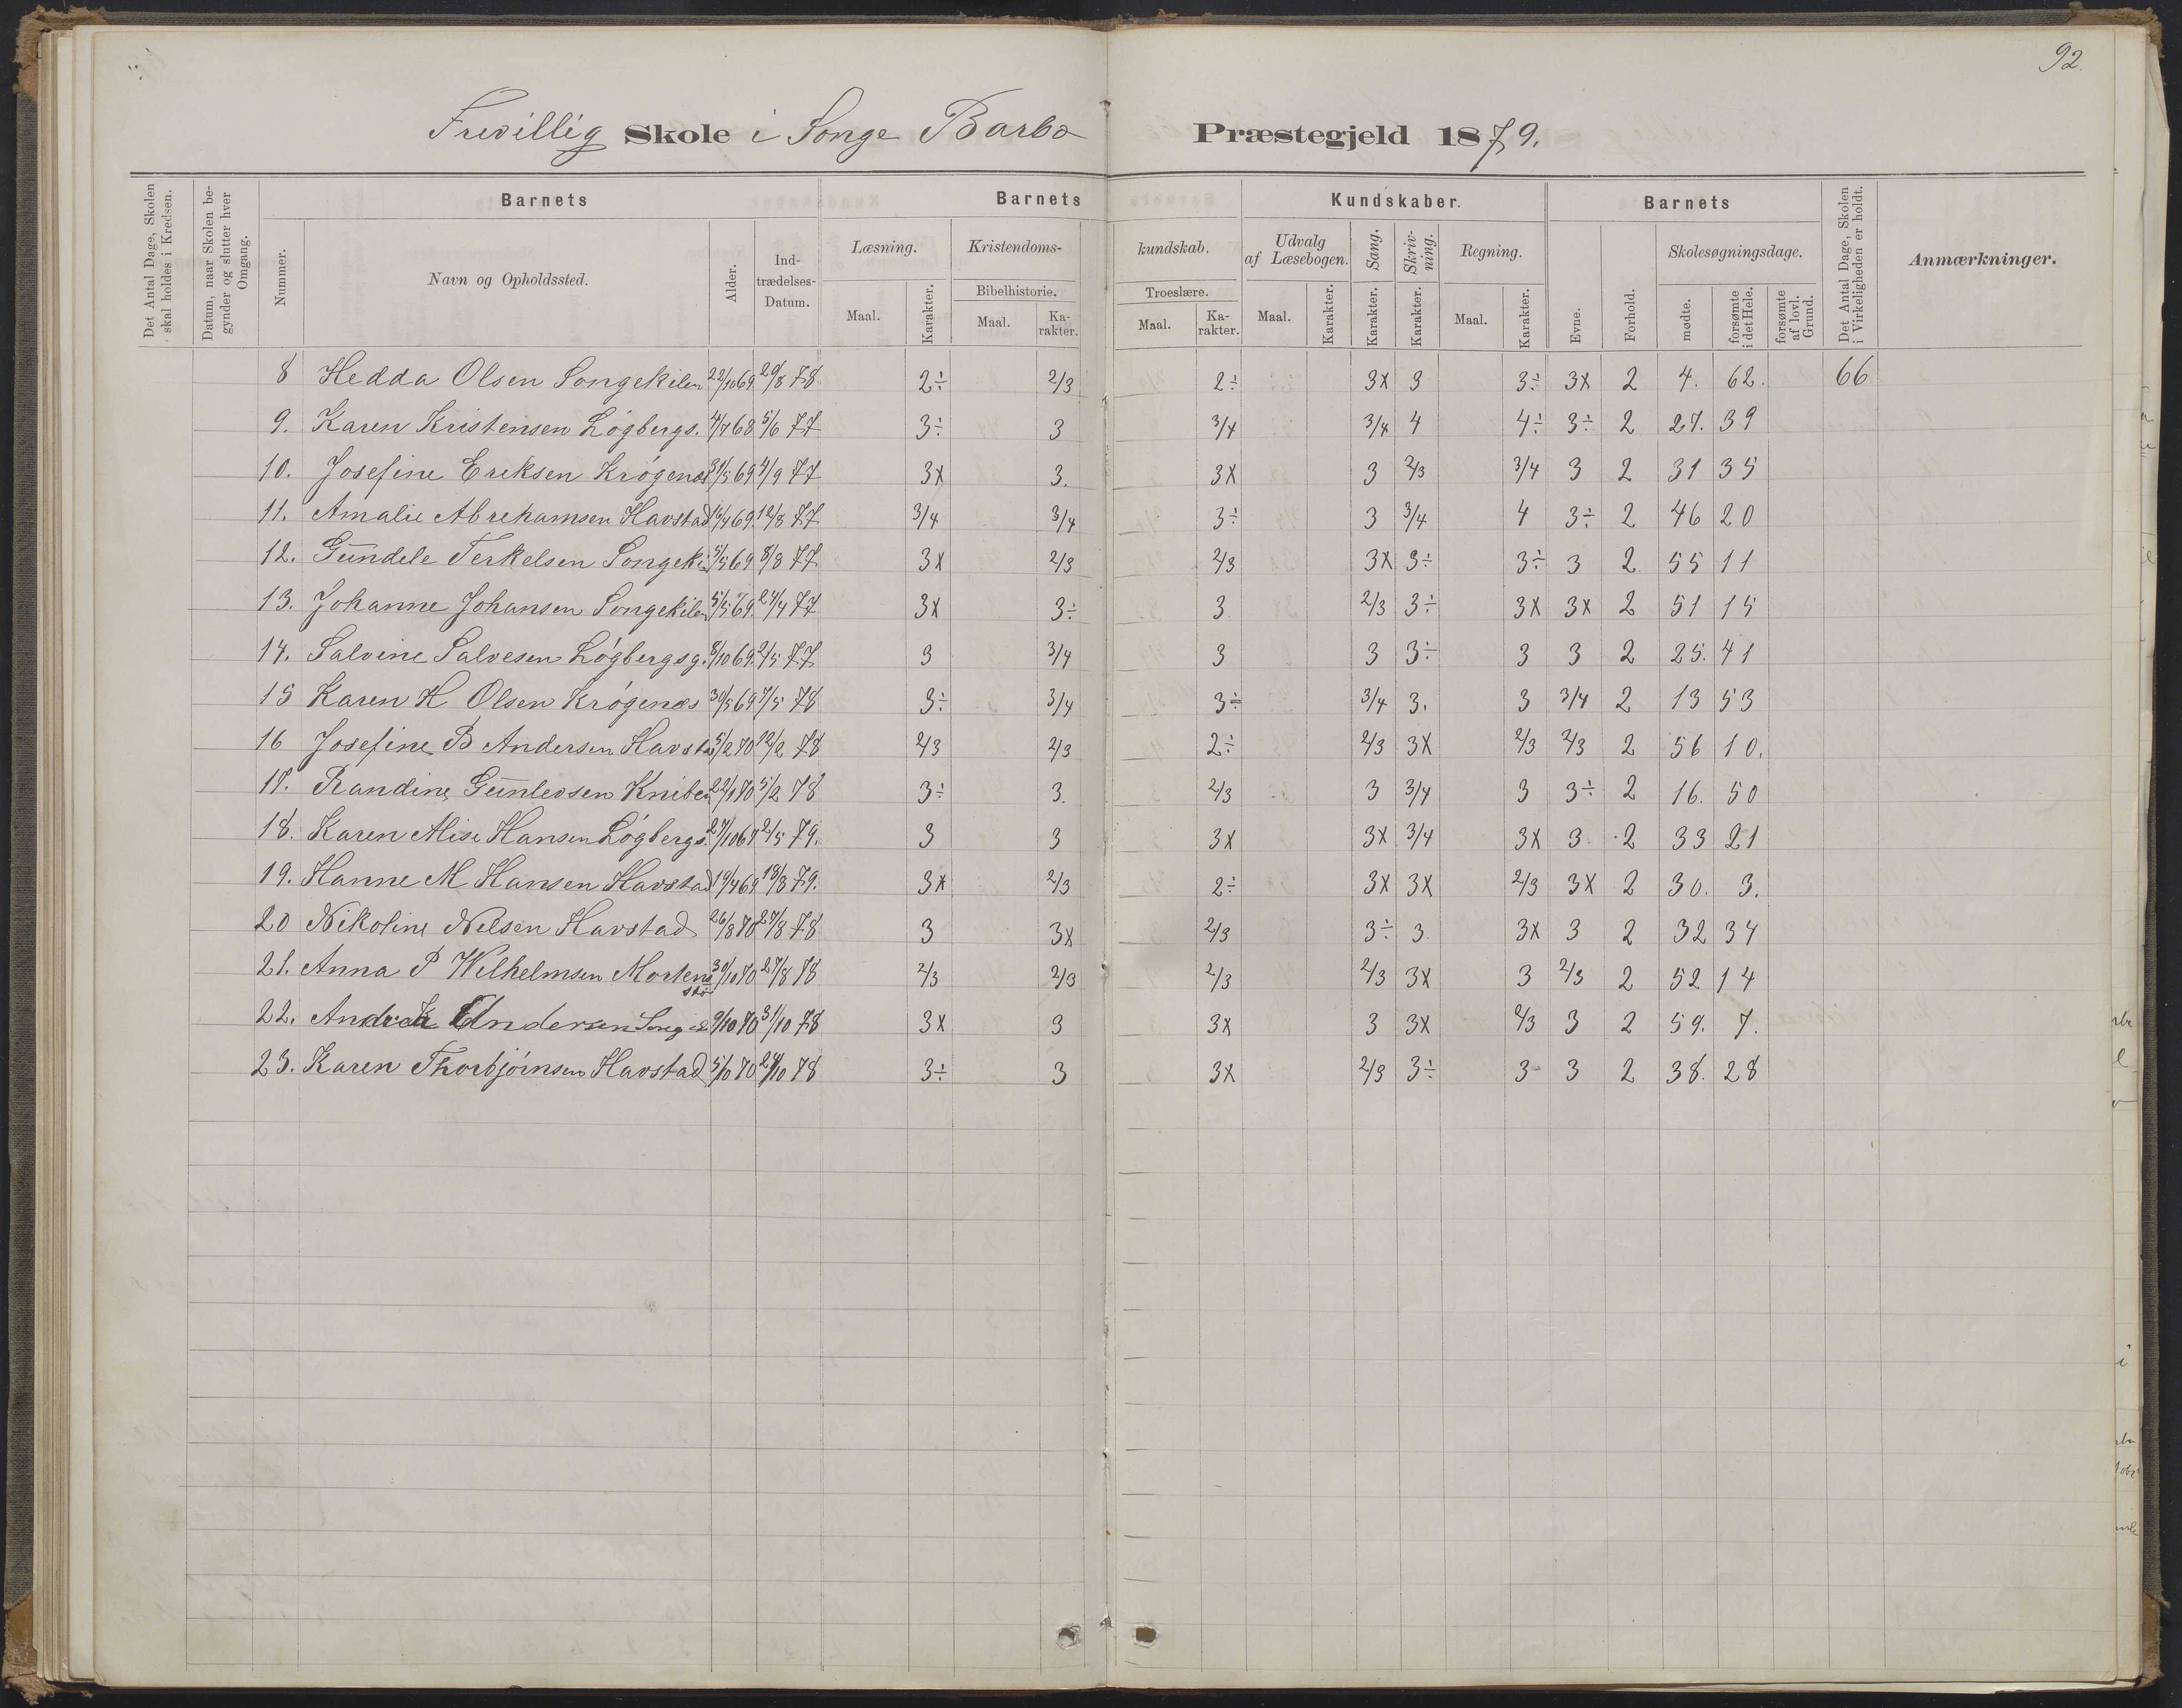 92.
Frivillig Skole i Songe Barbo Præstegjeld 1879.
Det Antal Dage, Skolen skal holdes i Kredsen.
Datum, naar Skolen begynder og slutter hver Omgang.
Barnets Barnets Kundskaber. Barnets
Nummer. Navn og Opholdssted. Alder. Indtrædelses-Datum. Læsning. Kristendoms- kundskab. Udvalg af Læsebogen. Sang. Skrivning. Regning. Evne. Forhold. Skolesøgningsdage. Det Antal Dage, Skolen i Virkeligheden er holdt. Anmærkninger.
Bibelhistorie. Troeslære.
Maal. Karakter. Maal. Karakter. Maal. Karakter. Maal. Karakter. Karakter. Karakter. Maal. Karakter. mødte. forsømte i det Hele. forsømte af lovl. Grund.
8 Hedda Olsen Songekilen 22/10 69 20/8 78 2÷ 2/3 2÷ 3x 3 3÷ 3x 2 4. 62. 66
9. Karen Kristensen Løgbergs. 4/7 68 5/6 77 3÷ 3 3/4 3/4 4 4÷ 3÷ 2 27. 39
10. Josefine Eriksen Krøgenæs 31/5 69 4/9 77 3x 3. 3x 3 2/3 3/4 3 2 31 35
11. Amalie Abrehamsen Havstad 16/4 69. 12/8 77 3/4 3/4 3÷ 3 3/4 4 3÷ 2 46 20
12. Gundele Terkelsen Songeki 5/5 69 8/8 77 3x 2/3 2/3 3x 3÷ 3÷ 3 2 55 11
13. Johanne Johansen Songekilen 5/5 69. 27/4 77 3x 3÷ 3 2/3 3÷ 3x 3x 2 51 15
14. Salvine Salvesen Løgbergsg. 8/10 69. 2/5 77 3 3/4 3 3 3÷ 3 3 2 25. 41
15 Karen H Olsen Krøgenæs 30/5 69 7/5 78 3÷ 3/4 3÷ 3/4 3. 3 3/4 2 13 53
16 Josefine B Andersen Havsta 5/2 70 12/2 78 2/3 2/3 2÷ 2/3 3x 2/3 2/3 2 56 10.
17. Randine Gunlevsen Kniben 22/1 70 5/2 78 3÷ 3. 2/3 3 3/4 3 3÷ 2 16. 50
18. Karen Alise Hansen Løgbergs. 27/10 67 2/5 79. 3 3 3x 3x 3/4 3x 3 2 33 21
19. Hanne M Hansen Havstad 19/4 69 18/8 79. 3x 2/3 2÷ 3x 3x 2/3 3x 2 30. 3.
20 Nikoline Nelsen Havstad 26/8 70 27/8 78 3 3x 2/3 3÷ 3 3x 3 2 32 34
21. Anna P Wilhelmsen Mortens 30/10 70 27/8 78 2/3 2/3 2/3 2/3 3x 3 2/3 2 52 14
22. Andersen Songe 9/10 70 31/10 78 3x 3 3x 3 3x 2/3 3 2 59. 7.
23. Karen Thorbjørnsen Havstad 5/10 70 24/10 78 3÷ 3 3x 2/3 3÷ 3 3 2 38. 28